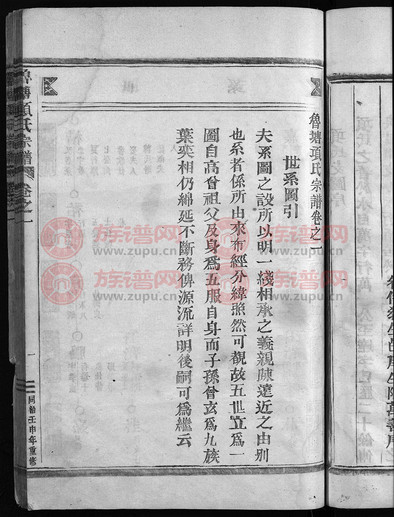 魯塘項氏宗譜卷之一
世系圖引
夫系圖之設所以明一綫相承之義親疎遠近之由別
也系者係所由來布經分緯照然可觀故五世立爲一
圖自高曾祖父及身爲五服自身而子孫曾玄爲九族
葉奕相仍綿延不斷務俾源流詳明後嗣可爲繼云
魯塘項氏宗譜
卷之一
一
同治壬申年重修
族谱网
www.zupu.cn